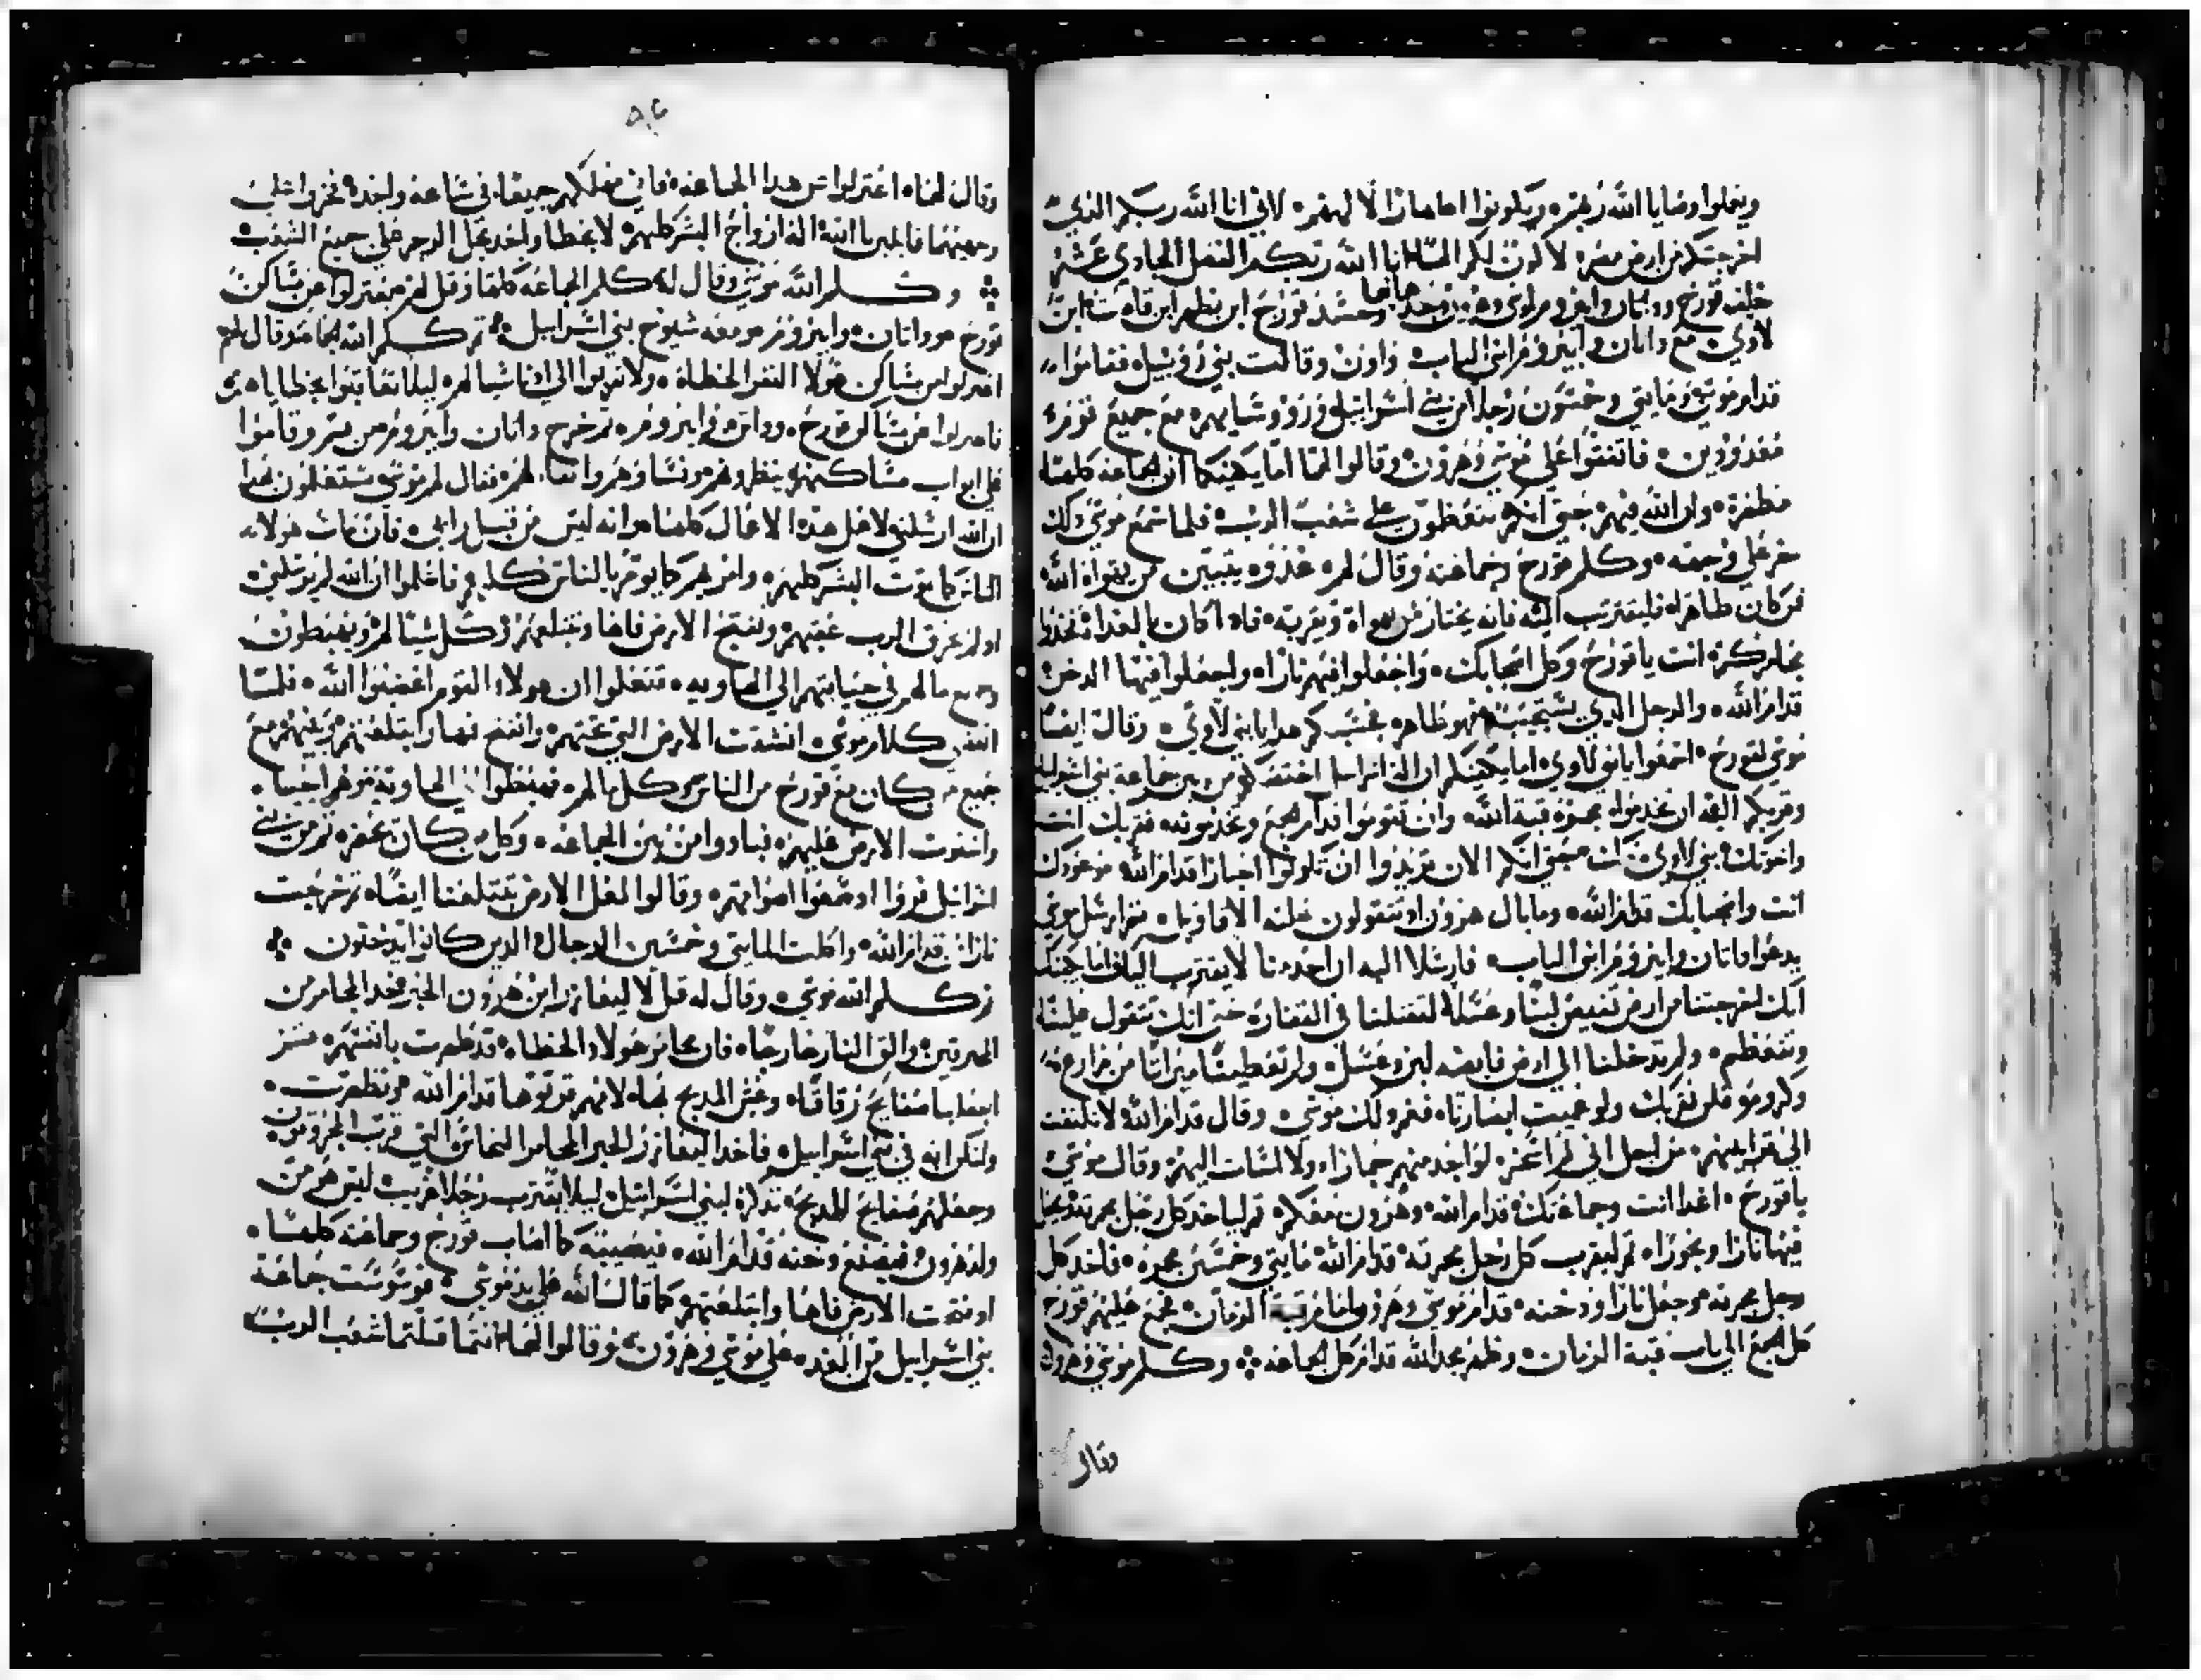 ويعملوا وصايا الله ربهم ويكونوا اطهارا لالههم لاني انا الله ربكم الذي
اخرجتكم من ارض مصر لاكون لكم الها انا الله ربكم الفصل الحادي عشر
خلف قورح وداثان وابيروم وحشد قورح ابن يظهر ابن قاهت ابن
لاوي مع داثان وابيروم ابني الياب واون وقالت بني روبيل فقاموا
قدام موسي ومايتي وخمسون رجلا من بني اسرايل وروساهم مع جميع
معدودين فاتفقوا علي موسي وهرون وقالوا لهما اما يكفيكما ان الجماعه كلها
مطهرة وان الله فيهم حتي انكم تتعظمون علي شعب الرب فلما سمع موسي ذلك
خر علي وجهه وكلم قورح وجماعته وقال لهم غدوه يتبين من يهواه الله
من كان طاهرا فليقترب اليه فانه يختار من يهواه ويقربه فاذا كان بالغداة فخذوا
مجامركم انت يا قورح وكل اصحابك واجعلوا فيهم نارا واجعلوا فيها الدخن
قدام الله والرجل الذي يستجيب فهو طاهر بحسبكم هذا يا بني لاوي وقال ايضا
موسي لقورح اسمعوا يا بني لاوي اما يكفيكم ان اله اسرايل اختصكم من بين جماعة بني اسرايل
وقربكم اليه ان تخدموا قبة الله وان تقوموا قدام الجمع وتخدمونه فقربك انت
واخوتك بني لاوي معك حتي انكم الان تريدوا ان تكونوا احبارا قدام الله موعودك
انت واصحابك قدام الله وما بال هرون اذ تتقولون عليه الاقاويل ثم ارسل موسي
يدعوا داثان وابيروم ابني الياب فارسلا اليه ان احدنا لا يقترب اليك اما يكفيك
انك اخرجتنا من ارض تفيض لبنا وعسلا لتقتلنا في القفار حتي انك تتقول علينا
وتتعظم ولم تدخلنا الي ارض فايضه لبن وعسل ولم تعطينا ميراثا من مزارع
وكروم فلن نقربك ولو عميت ابصارنا فغم ذلك موسي وقال قدام الله لا تلتفت
الي قرابينهم من اجل اني لم اخذ منهم حمارا ولا اسات اليهم وقال موسي
يا قورح اغدا انت وجماعتك قدام الله وهرون معكم ثم لياخذ كل رجل مجمرته ويجعل
فيها نارا وبخورا ثم ليقرب كل رجل مجمرته قدام الله مايتي وخمسين مجمرة فاخذ كل
رجل مجمرته وجعل نارا ودخنه قدام موسي وهرون امام قبة الزمان فجمع عليهم قورح
كل الجمع الي باب قبة الزمان وظهر مجد الله قدام كل الجماعه وكلم موسي وهرون
وقال
وقال لهما اعتزلوا من هذا الجماعه فاني مهلكهم جميعا في ساعه واحده فخروا علي
وجهيهما قايلين يا الله اله ارواح البشر كلهم لا يخطا واحد يحل الرجز علي جميع الشعب
وكلم الله موسي وقال له كلم الجماعه كلها وقل لهم يعتزلوا من مساكن
قورح وداثان وابيروم ومعه شيوخ بني اسرايل ثم كلم الله الجماعة وقال لهم
اعتزلوا من مساكن هولا النفر الخطاة ولا تدنوا الي اناشيا لهم ليلا تعاقبوا بخطاياهم
فاعتزلوا من مساكن قورح وداثان وابيروم ثم خرج داثان وابيروم وقاموا
علي ابواب مساكنهم ونساوهم وابناهم فقال لهم موسي ستعلمون بهذا
ان الله ارسلني لاعمل هذه الاعمال كلها وانه ليس من قبل رايي فان مات هولاء
الناس كما يموت البشر كلهم وامر بهم كما يومر بالناس كلهم فاعلموا ان الله لم يرسلني
او لم يخرق الرب تحتهم وتفتح الارض فاها وتبتلعهم وكل شيا لهم ويهبطون
وجميع ما لهم في حياتهم الي الهاويه فتعلموا ان هولاء القوم اغضبوا الله فلما
انقضي كلام موسي انشقت الارض التي تحتهم وانفتح فمها وابتلعتهم وبنيهم مع
جميع من كان مع قورح من الناس وكل ما لهم فهبطوا الي الهاويه وهم احيا
وانضمت الارض عليهم فبادوا من بين الجماعه وكل من كان معهم من بني
اسرايل فروا اذ سمعوا اصواتهم وقالوا لعل الارض تبتلعنا ايضا ثم خرجت
نارا من قدام الله واكلت المايتي وخمسين الرجال الذين كانوا يدخنون
ثم كلم الله موسي وقال له قل لاليعازر ابن هرون الحبر فياخذ المجامر من
المحرقين والق النار خارجا فان مجامر هولاء الخطاه قد طهرت بانفسهم
اجعلها صفايح رقاقا وغش المدبح بها لانهم قربوها قدام الله وتطهرت
ولتكن ايه في بني اسرايل فاخذ اليعازر الحبر المجامر النحاس التي قرب المحرقون
وجعلهم صفايح للمدبح تذكرة لبني اسرايل ليلا يقترب رجلا غريب ليس هو من
ولد هرون فيصنع دخنه قدام الله فيصيبه كما اصاب قورح وجماعته كلها
اذ فتحت الارض فاها وابتلعتهم كما قال الله علي يد موسي فوسوست جماعة
بني اسرايل من الغد علي موسي وهرون وقالوا لهما انتما قتلتما شعب الرب